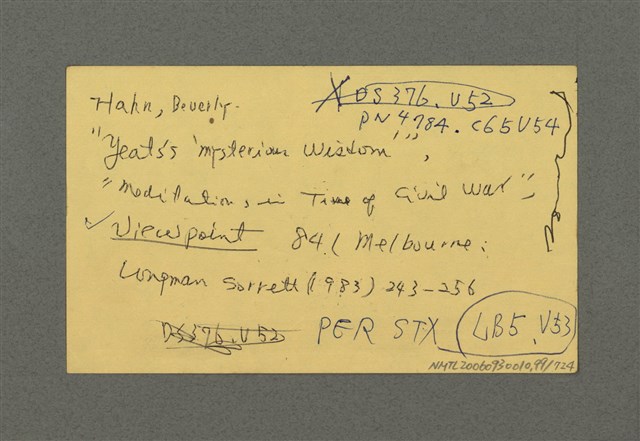 Hahn, Beverly.
X DS376.V52
PN4784.C65V54
"Yeats's 'mysterious wisdom'",
"Meditations in Time of Civil War",
✓ Viewpoint 84. (Melbourne:
Longman Sorrett (1983) 243-256
DS376.V52 PER STX LB5.V53
NMTL20060930010,99/724